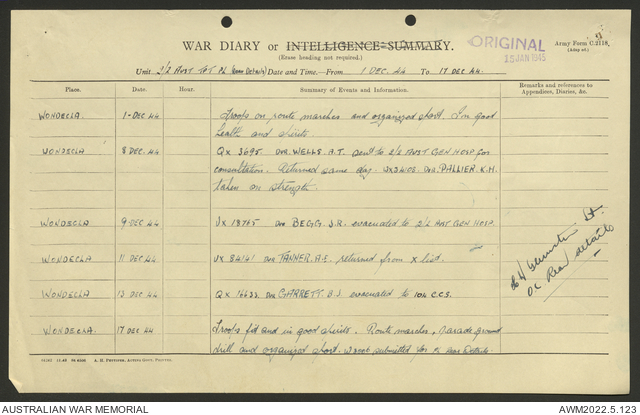 WAR DIARY or INTELLIGENCE SUMMARY.
(Erase heading not required.)
Army Form C.2118.
(Adap ed)
ORIGINAL
15 JAN 1945
Unit 2/2 AUST TPT PL (Rear Details) Date and Time—From 1 DEC. 44 To 17 DEC 44.
Place. Date. Hour. Summary of Events and Information. Remarks and references to Appendices, Diaries, &c.
WONDECLA. 1-DEC 44 Troops on route marches and organized sport. In good
health and spirits.
WONDECLA 8 DEC. 44 QX 3695 Dvr WELLS. A.T. sent to 2/2 AUST GEN HOSP for
consultation. Returned same day. Dvr PALLIER. K.H.
taken on strength.
WONDECLA 9-DEC 44 VX 18765 Dvr BEGG. J.R. evacuated to 2/2 AUST GEN HOSP.
WONDECLA 11 DEC 44 VX 84141 Dvr TANNER. A.E. returned from X list.
WONDECLA 13 DEC 44 QX 16633 Dvr GARRETT. B.J. evacuated to C.C.S.
WONDECLA. 17 DEC 44 Troops fit and in good spirits. Route marches, parade ground
drill and organized sport. submitted for Rear Details.
Lt.
OC Rear details
A. H. PETTIFER, ACTING GOVT. PRINTER.
AUSTRALIAN WAR MEMORIAL
AWM2022.5.123